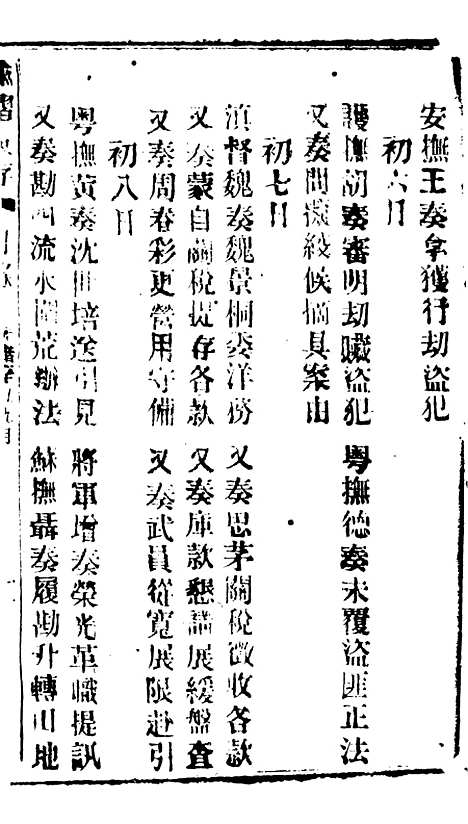 安撫王奏拿獲行劫盜犯
初六日
護撫胡奏審明劫贓盜犯　粵撫德奏未覆盜匪正法
又奏問擬絞候摘具案由
初七日
滇督魏奏魏景桐委洋務　又奏思茅關稅徵收各款
又奏蒙自關稅提存各款　又奏庫款懇請展緩盤查
又奏周春彩更營用守備　又奏武員從寬展限赴引
初八日
粵撫黃奏沈世培送引見　將軍增奏榮光革職提訊
又奏勘 流水圍荒辦法　蘇撫聶奏履勘升轉山地